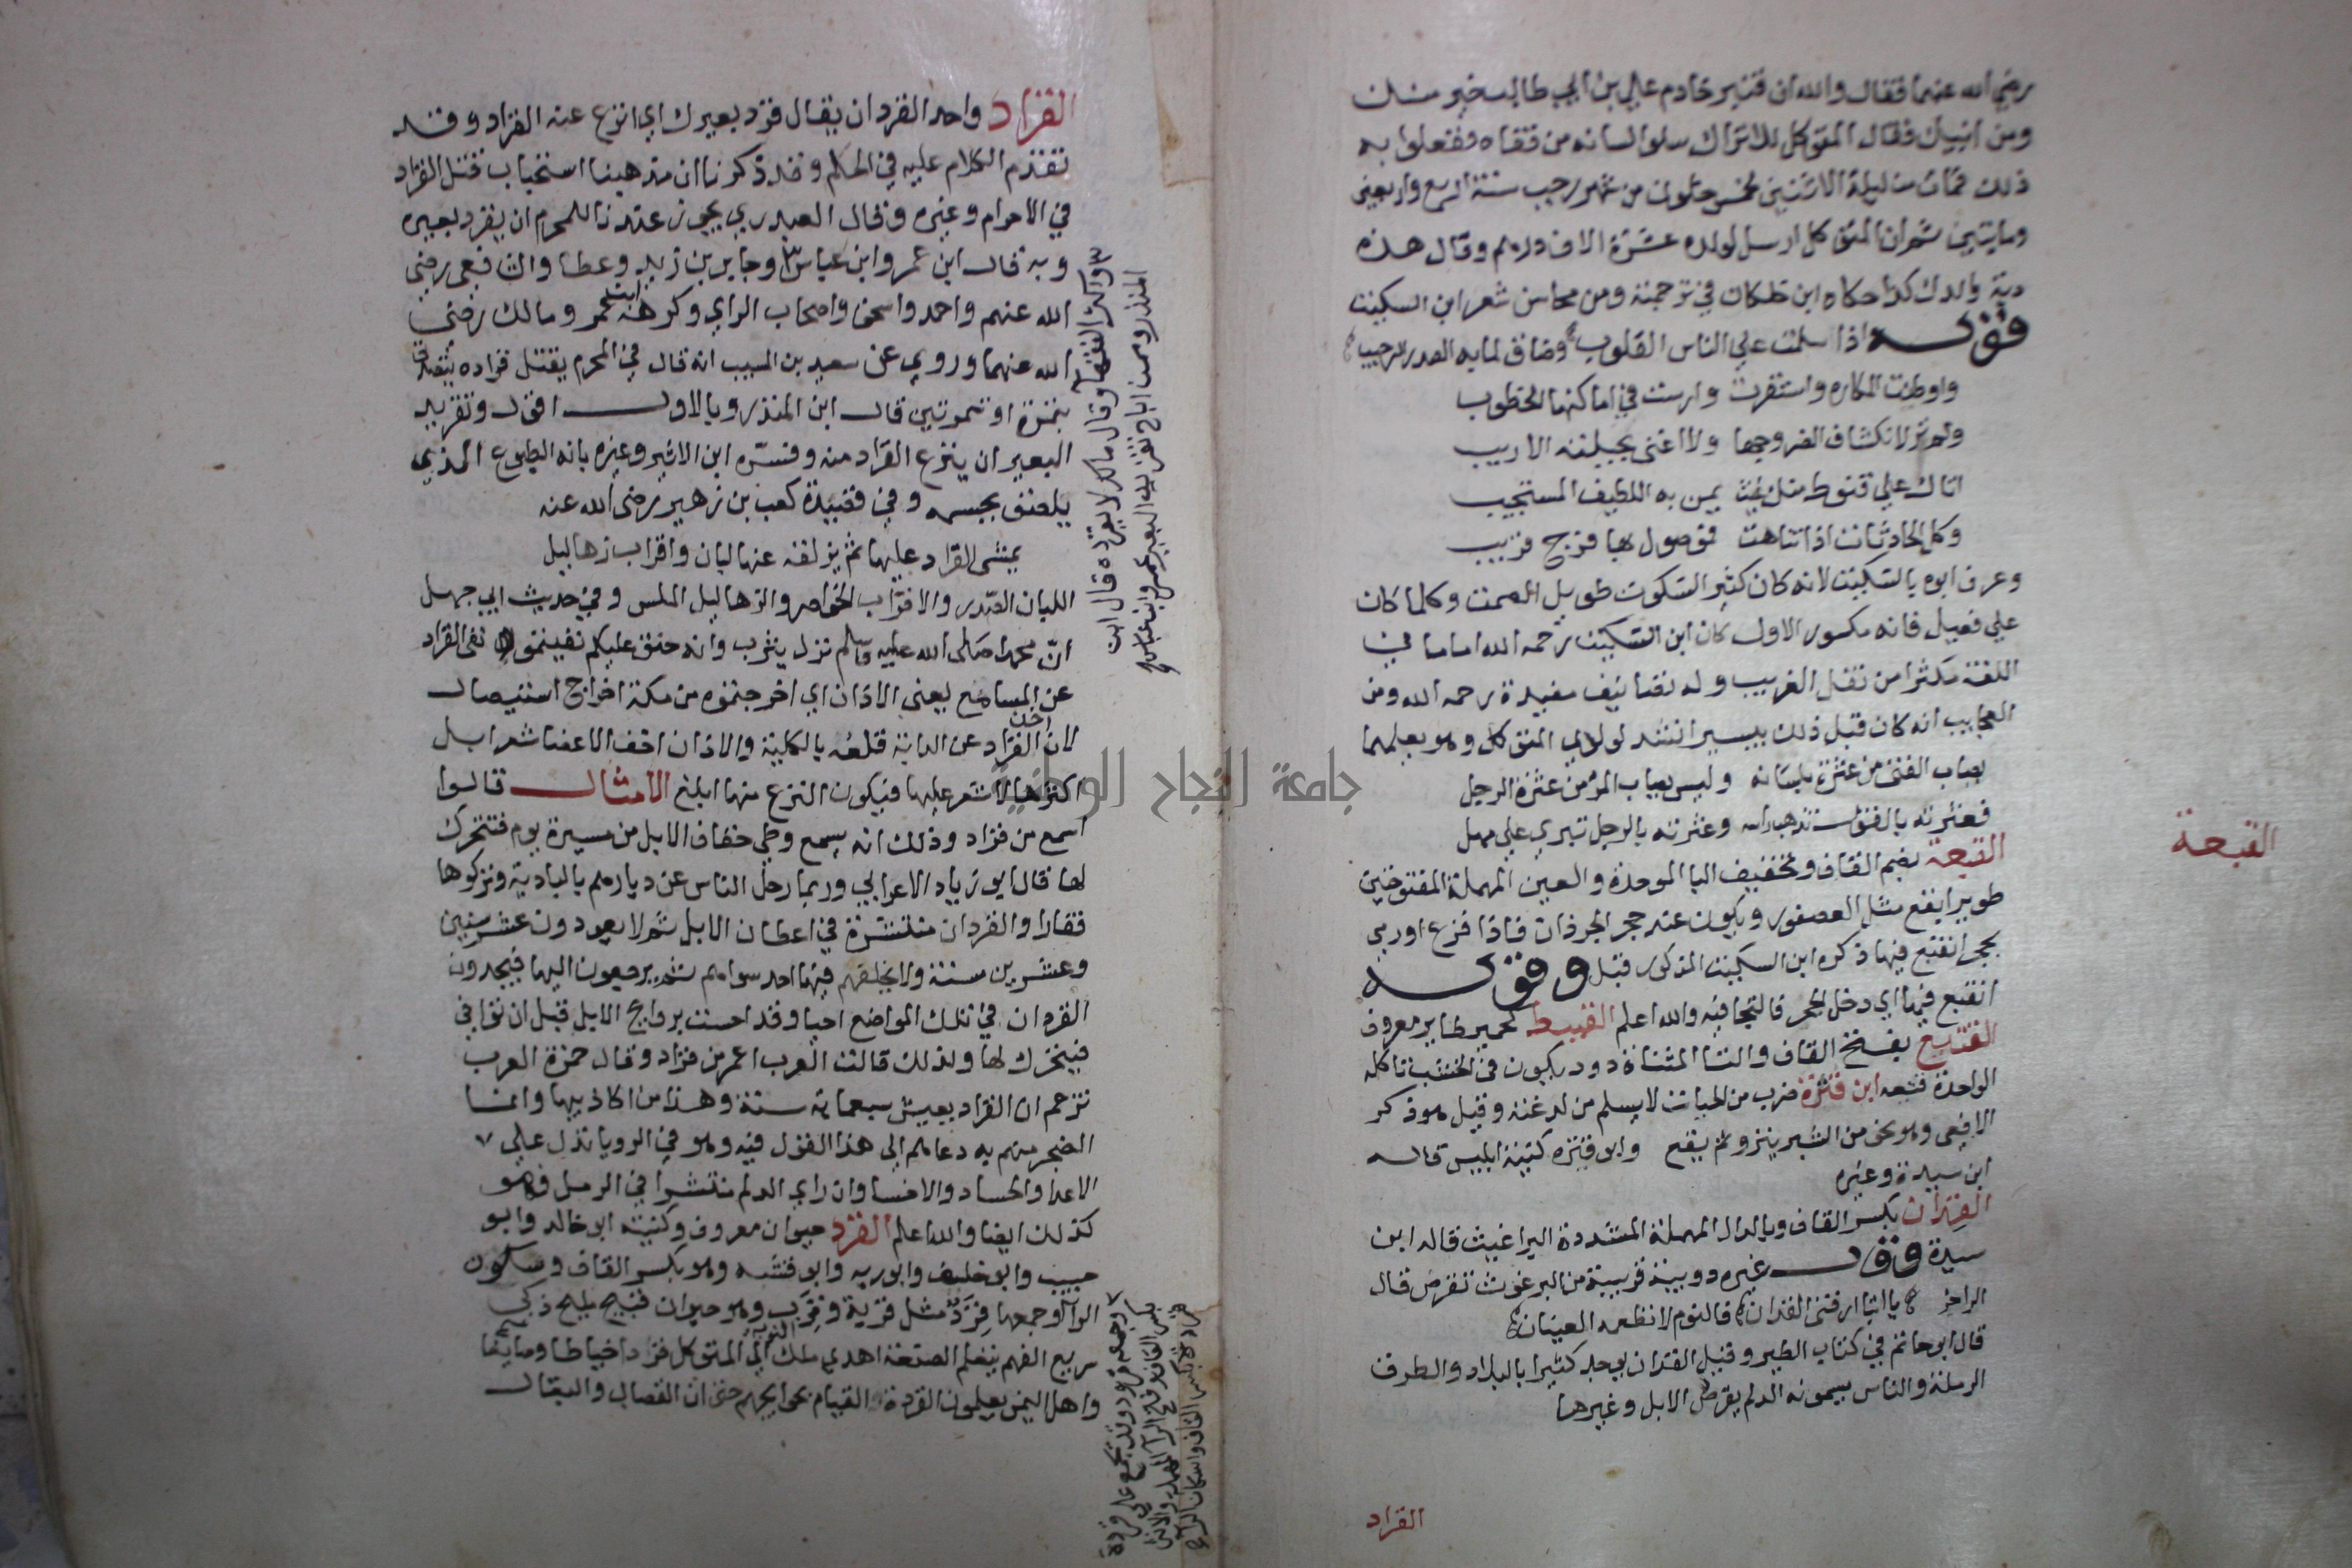 رضي الله عنهما فقال والله ان قنبر خادم علي بن ابي طالب خير منك
ومن ابنيك فقال المتوكل للاتراك سلوا لسانه من قفاه ففعلوا به
ذلك فمات من ليلة الاثنين لخمس خلون من شهر رجب سنة اربع واربعين
ومايتين ثم ان المتوكل ارسل لولده عشرة الاف درهم وقال هذه
دية والدك كذا حكاه ابن خلكان في ترجمته ومن محاسن شعر ابن السكيت
قوله اذا اشتملت علي الناس القلوب وضاق لما به الصدر الرحيب
واوطنت المكاره واستقرت وارست في اماكنها الخطوب
ولم تر لانكشاف الضر وجها ولا اغني بحيلته الاريب
اتاك علي قنوط منك غيث يمن به اللطيف المستجيب
وكل الحادثات اذا تناهت فموصول بها فرج قريب
وعرف ابوه بالسكيت لانه كان كثير السكوت طويل الصمت وكلما كان
علي فعيل فانه مكسور الاول كان ابن السكيت رحمه الله اماما في
اللغة مكثرا من نقل الغريب وله تصانيف مفيدة رحمه الله ومن
العجايب انه كان قبل ذلك بيسير انشد لولدي المتوكل وهو يعلمهما
يصاب الفتى من عثرة بلسانه وليس يصاب المرء من عثرة الرجل
فعثرته بالقول تذهب راسه وعثرته بالرجل تبري علي مهل
القبعة
القبعة بضم القاف وتخفيف البا الموحدة والعين المهملة المفتوحتين
طوير ابقع مثل العصفور ويكون عند حجر الجرذان فاذا فزع اورمي
بحجر انقبع فيها ذكره ابن السكيت المذكور قبل وقوله
انقبع فيها اي دخل الجحر فالتجا فيه والله اعلم القبيط كحمير طاير معروف
القتع بفتح القاف والتا المثناة دود يكون في الخشب تاكله
الواحدة قتعه ابن قترة ضرب من الحيات لا يسلم من لدغته وقيل هو ذكر
الافعي وهو نحو من الشبر ينزو ثم يقع وابو قترة كنية ابليس قاله
ابن سيدة وغيره
القدان بكسر القاف وبالدال المهملة المشددة البراغيث قاله ابن
سيدة وقال غيره دويبة قريبة من البرغوث تقرض قال
الراجز يا ابتا ارقني القدان فالنوم لا تطعمه العينان
قال ابو حاتم في كتاب الطير وقيل القدان يوجد كثيرا بالبلاد والطرف
الرملة والناس يسمونه الدلم يقرص الابل وغيرها
القراد
القراد واحد القردان يقال قرد بعيرك اي انزع عنه القراد وقد
تقدم الكلام عليه في الحلم وقد ذكرنا ان مذهبنا استحباب قتل القراد
في الاحرام وغيره وقال العبدري يجوز عندنا للمحرم ان يقرد بعيره
وبه قال ابن عمر وابن عباس وجابر بن زيد وعطا والشافعي رضي
الله عنهم واحمد واسحق واصحاب الراي وكرهه ابن عمر ومالك رضي
الله عنهما وروي عن سعيد بن المسيب انه قال في المحرم يقتل قراده يتصدق
بتمرة او تمرتين قال ابن المنذر وبالاول اقول وتقريد
البعير ان ينزع القراد منه وفسره ابن الاثير وغيره بانه الطبوع الذي
يلصق بجسمه وفي قصيدة كعب بن زهير رضي الله عنه
يمشى القراد عليها ثم يزلقه عنها لبان واقراب زهاليل
اللبان الصدر والاقراب الخواصر والزهاليل الملس وفي حديث ابي جهل
ان محمدا صلى الله عليه وسلم نزل يثرب وانه حنق عليكم نفيتموه نفي القراد
عن المسامع يعني الاذان اي اخرجتموه من مكة اخراج استيصال
لان اخذ القراد عن الدابة قلعه بالكلية والاذان اخف الاعضا شعرا بل
اكثرها لا شعر عليها فيكون النزع منها ابلغ الامثال قالوا
اسمع من قراد وذلك انه يسمع وطي خفاف الابل من مسيرة يوم فتتحرك
لها قال ابو زياد الاعرابي وربما رحل الناس عن ديارهم بالبادية وتركوها
قفارا والقردان منتشرة في اعطان الابل ثم لا يعودون عشر سنين
وعشرين سنة ولا يخلفهم فيها احد سواهم ثم يرجعون اليها فيجدون
القردان في تلك المواضع احيا وقد احست بروايح الابل قبل ان توافي
فيتحرك لها ولذلك قالت العرب اعمر من قراد وقال حمزة العرب
تزعم ان القراد يعيش سبعماية سنة وهذا من اكاذيبها وانما
الضجر منهم به دعاهم الي هذا القول فيه وهو في الرويا تدل علي
الاعدا والحساد والاخسا وان راي الدلم منتشرا في الرمل فهو
كذلك ايضا والله اعلم القرد حيوان معروف وكنيته ابو خالد وابو
حبيب وابو خليف وابو ربه وابو قشه وهو بكسر القاف وسكون
الرا وجمعها قرد مثل قربة وقرب وهو حيوان قبيح مليح ذكي
سريع الفهم يتعلم الصنعة اهدي ملك النوبة الي المتوكل قردا خياطا وصايغا
واهل اليمن يعلمون القردة القيام بحوايجهم حتى ان القصاب والبقال
واكثر الفقها وقال مالك لا يقرده قال ابن
المنذر وممن اباح تقريد البعير عمر وابن عباس
وجمعه قرود وقد يجمع علي قردة
بكسر القاف وفتح الرا المهملة والانثى
قردة بكسر القاف واسكان الرا
جامعة النجاح الوطنية